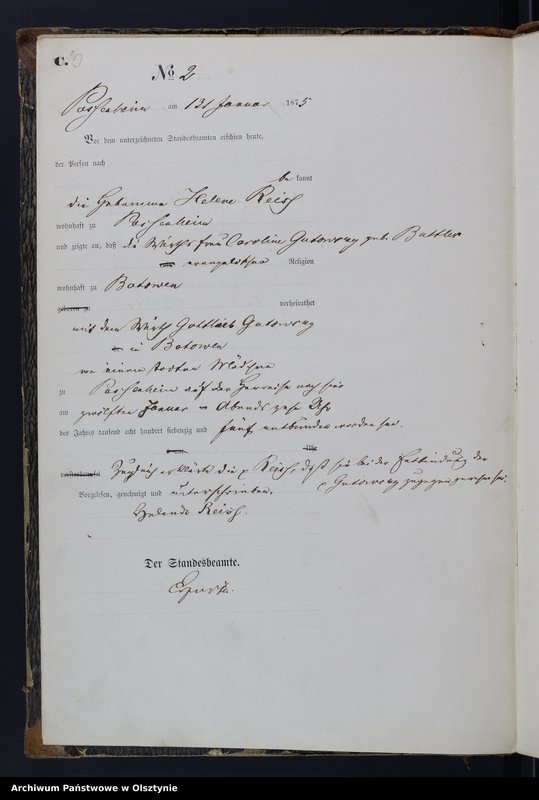 C.
No 2
Passenheim am 13t Januar 1875
Vor dem unterzeichneten Standesbeamten erschien heute,
der Person nach
be kannt
die Hebamme Helene Reich
wohnhaft zu Passenheim
und zeigte an, daß die Wirthsfrau Caroline Gutowsky geb. Battler
evangelischer Religion
wohnhaft zu Botowen
geboren zu verheirathet
mit dem Wirth Gottlieb Gutowsky
in Botowen
von einem todten Mädchen
zu Passenheim auf der Herreise nach hier
am zwölften Januar Abends zehn Uhr
des Jahres tausend acht hundert siebenzig und fünf entbunden worden sei.
Uhr
verstorben sei Zugleich erklärte die p Reich, daß sie bei der Entbindung der
p Gutowsky zugegen gewesen sei.
Vorgelesen, genehmigt und unterschrieben.
Helene Reich.
Der Standesbeamte.
Archiwum Państwowe w Olsztynie